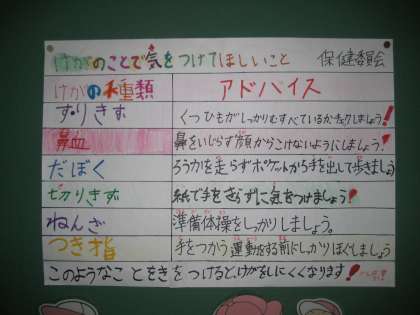 けがのことで気をつけてほしいこと 保健委員会
けがの種類 アドバイス
すりきず くつひもがしっかりむすべているかチェックしましょう!
鼻血 鼻をいじらず顔からこけないようにしましょう!
だぼく ろうかを走らずポケットから手を出して歩きましょう
切りきず 紙で手をきらずに気をつけましょう!
ねんざ 準備体操をしっかりしましょう。
つき指 手をつかう運動をする前にしっかりほぐしましょう
このようなことをきをつけると、けがをしにくくなります!